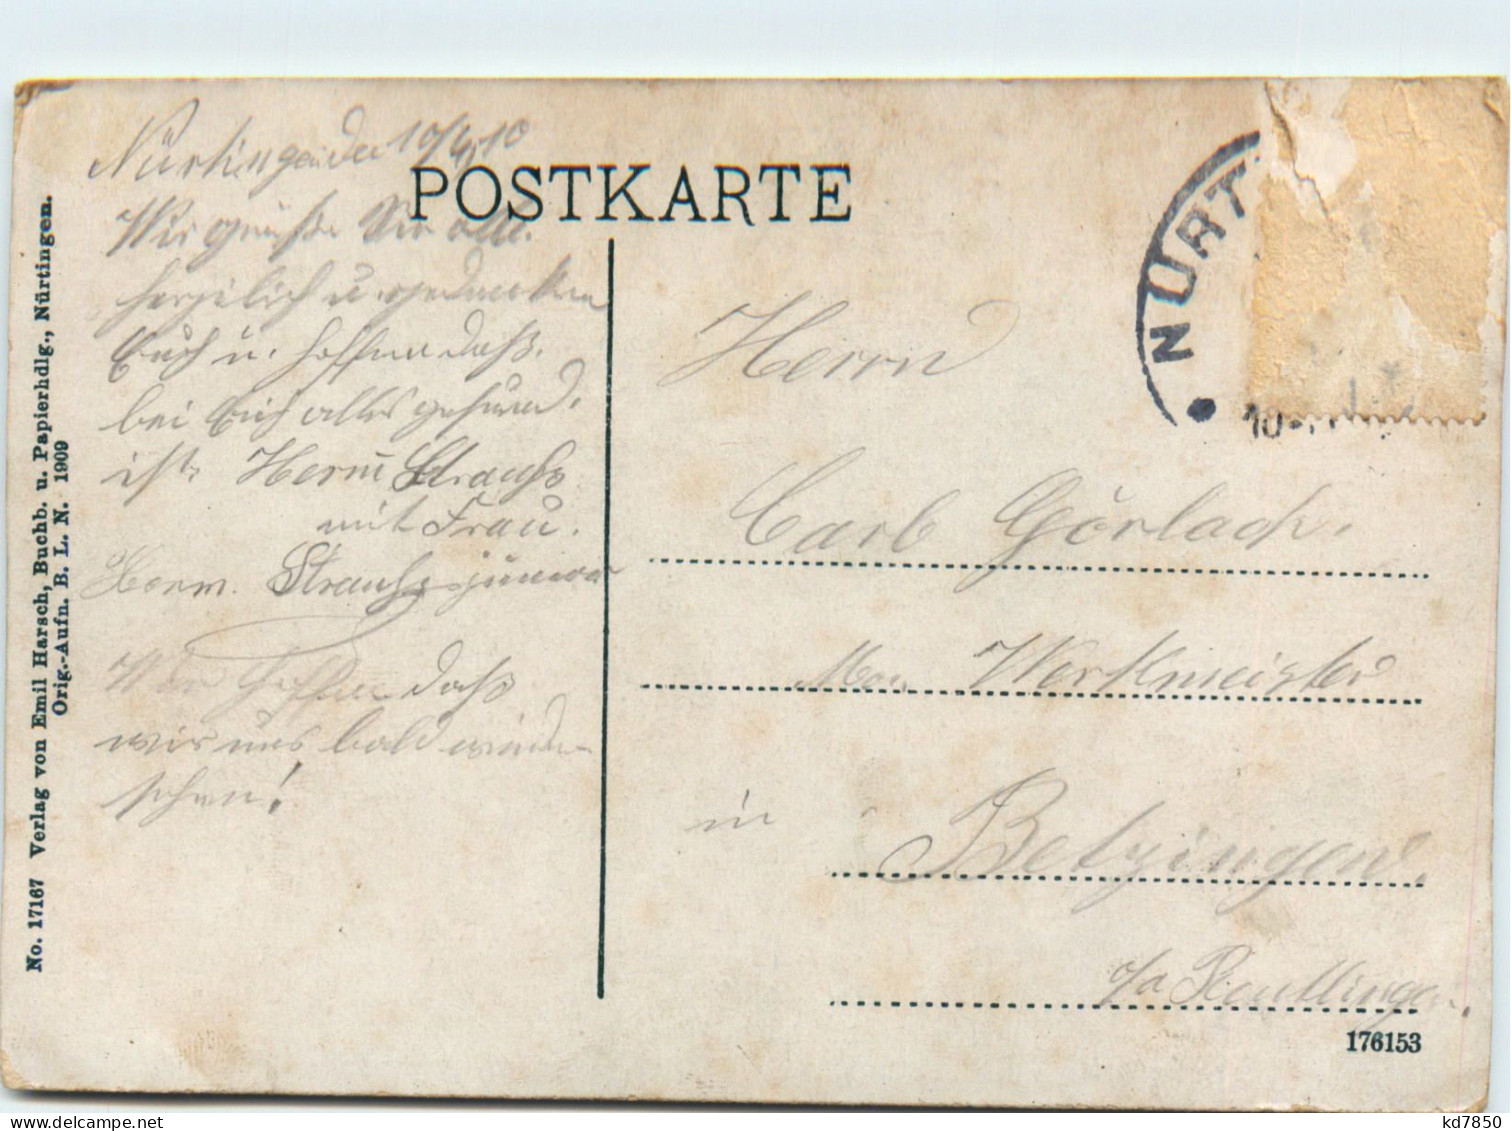 Nürtingen den 10/4, 10
POSTKARTE
Wir grüße Sie alle.
herzlich u. gedenken
Euch u. hoffen daß.
bei Euch alles gesund.
ist. Herm Strauß
mit Frau.
Herm. Strauß junior
Wir hoffen daß
wir uns bald wieder
sehen!
No. 17167 Verlag von Emil Harsch, Buchb. u. Papierhdlg., Nürtingen.
Orig.-Aufn. B. L. N. 1909
NÜRT
Herrn
Carl Görlach.
Werkmeister
in Betzingen.
o/a Reutlingen.
176153
kd7850